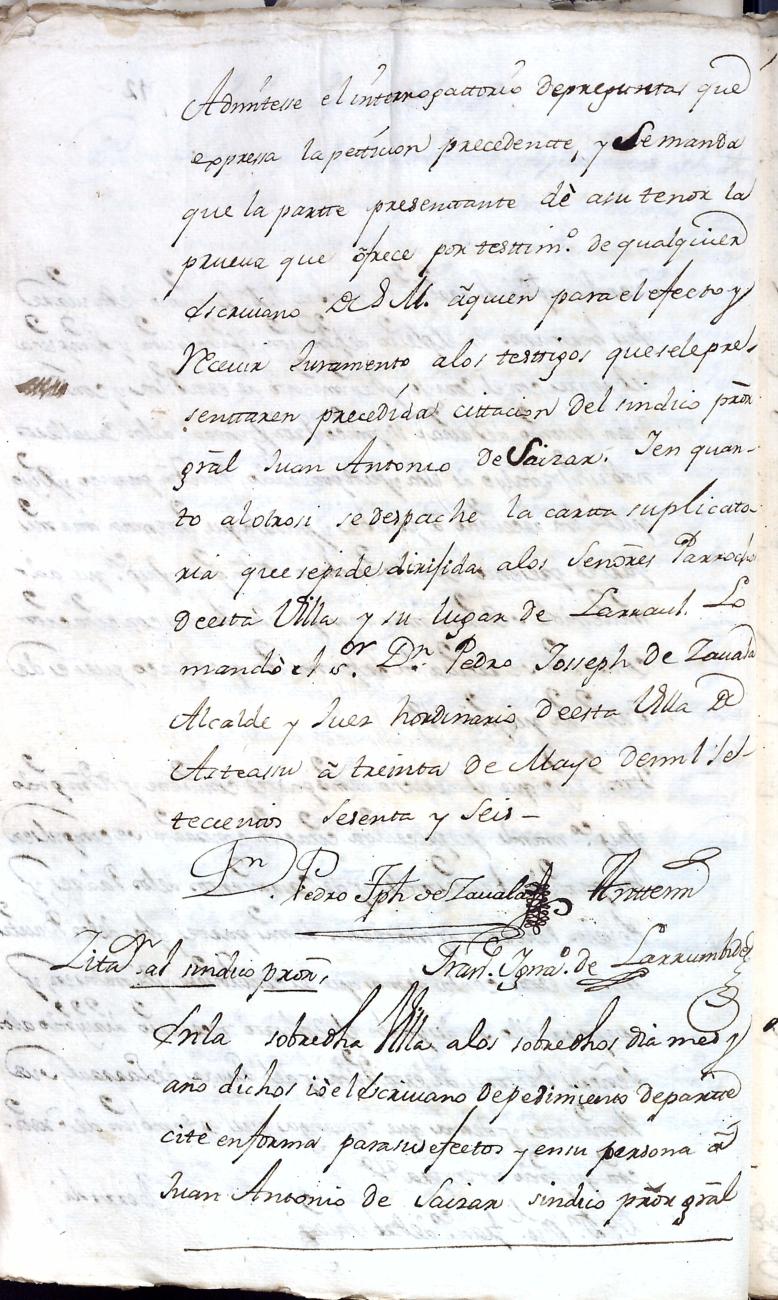 Admitesse el interrogattorio de preguntas que
expressa la petticion precedentte, y Se manda
que la partte presenttante dè a su tenor la
prueva que ofrece por testtimº. de qualquier
Escrivano De S M. âquien para el efecto y
Recevir Juramento a los testtigos que se le pre
senttaren precedida cittacion del sindico prõr
grãl Juan Antonio de Saizar. Ien quan-
to alotrosi se despache la cartta suplicato
ria que se pide dirijida a los Señores Parrocho
de esta Villa y su lugar de Larraul. Lo
mandò el sor. Dn. Pedro Josseph de Zavala
Alcalde y Juez hordinario de esta Villa De
Asteassu â treinta de Mayo de mil Set
tecientos Sesenta y Seis –
Dn. Pedro Jph de Zavala Anttemi
Zitaon. al sindico prõr, Franco. Ignaº. de Larrumbide
En la sobredha Villa a los sobredhos dia mes y
año dichos iò el Escrivano de pedimiento de partte
citè en forma para sus efectos y en su persona â
Juan Antonio de Saizar sindico prõr grãl